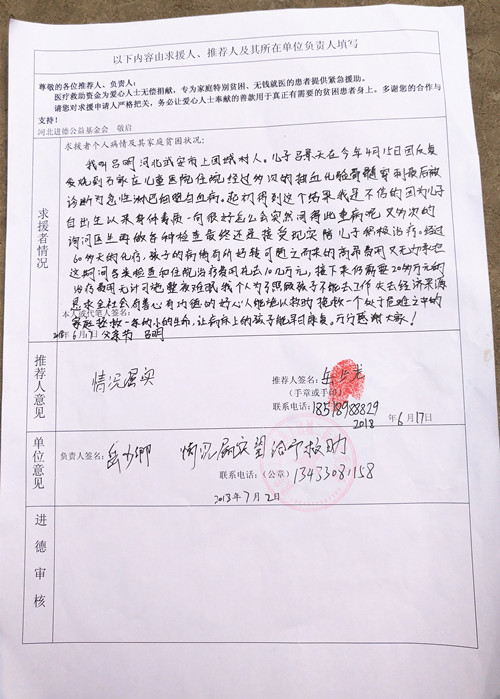 以下内容由求援人、推荐人及其所在单位负责人填写
尊敬的各位推荐人、负责人：
医疗救助资金为爱心人士无偿捐献，专为家庭特别贫困、无钱就医的患者提供紧急援助。
请您对求援申请人严格把关，务必让爱心人士奉献的善款用于真正有需要的贫困患者身上。多谢您的合作与
支持！
河北进德公益基金会 敬启
求援者情况
求援者个人病情及其家庭贫困状况：
我叫吕明河北武安市上团城村人。儿子吕景天在今年4月15日因反复
发烧到石家庄儿童医院住院经过多次的抽血化验骨髓穿刺最后被
诊断为急性淋巴细胞白血病。起初得到这个结果我是不信的因为儿子
自出生以来身体素质一向很好怎么会突然间得此重病呢又多次的
询问医生再做各种检查最终还是接受现实陪儿子积极治疗。经过
60多天的化疗，孩子的病情有所好转可随之而来的高昂费用又无力承担
这期间各类检查和住院治疗费用花去10几万元，接下来仍需要20多万元的
治疗费用无计可施整夜难眠我个人为了照顾孩子不能去工作失去经济来源
恳求全社会有善心有
的好心人能施以援助挽救一个处于危难之中的
本人或代笔人签名：
家庭拯救一个幼小的生命，让病床上的孩子能早日康复。万分感谢大家！
2018年6月17日 父亲 吕明
推荐人意见
情况属实
推荐人签名：
（手章或手印）
联系电话：18518988829
2018年6月17日
单位意见
负责人签名：
情况属实望给予救助
联系电话：（公章）13433081158
2018年7月2日
进德审核